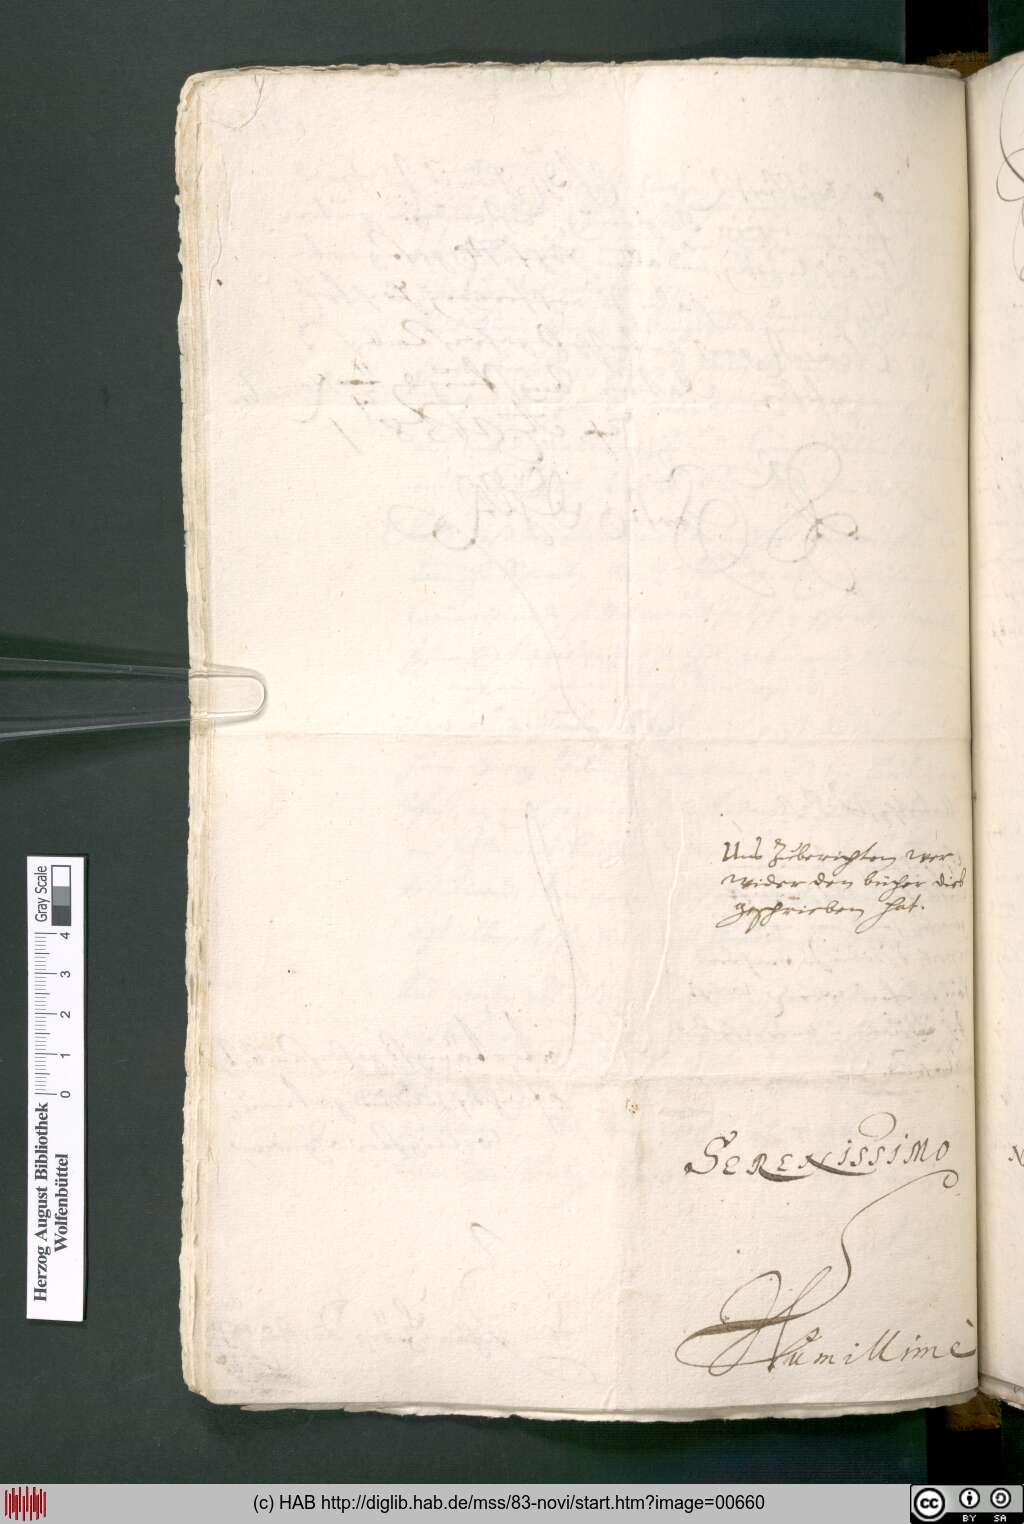 Uns Zuberichten wer
wider den bücher dieb
geschrieben hat.
SERENISSIMO
Humillimè
Herzog August Bibliothek
Wolfenbüttel
0 1 2 3 4
Gray Scale
(c) HAB http://diglib.hab.de/mss/83-novi/start.htm?image=00660
cc BY SA